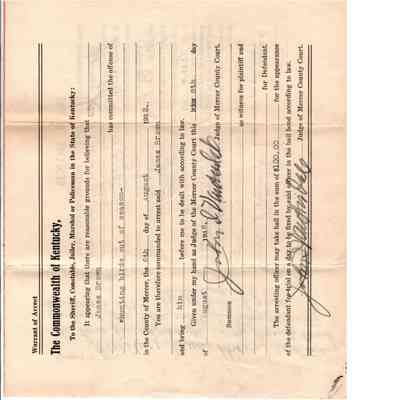 Warrant of Arrest
The Commonwealth of Kentucky,
To the Sheriff, Constable, Jailer, Marshal or Policeman in the State of Kentucky:
It appearing that there are reasonable grounds for believing that
James Brown
has committed the offense of
Hunting birds out of season-
in the County of Mercer, the 6th day of August 1912.
You are therefore commanded to arrest said James Brown
and bring him before me to be dealt with according to law.
Given under my hand as Judge of the Mercer County Court this 6th day
of August 1912.
Judge of Mercer County Court.
Summons
as witness for plaintiff and
for Defendant.
The arresting officer may take bail in the sum of $100.00 for the appearance
of the defendant for trial on a day to be fixed by said officer in the bail bond according to law.
Judge of Mercer County Court.